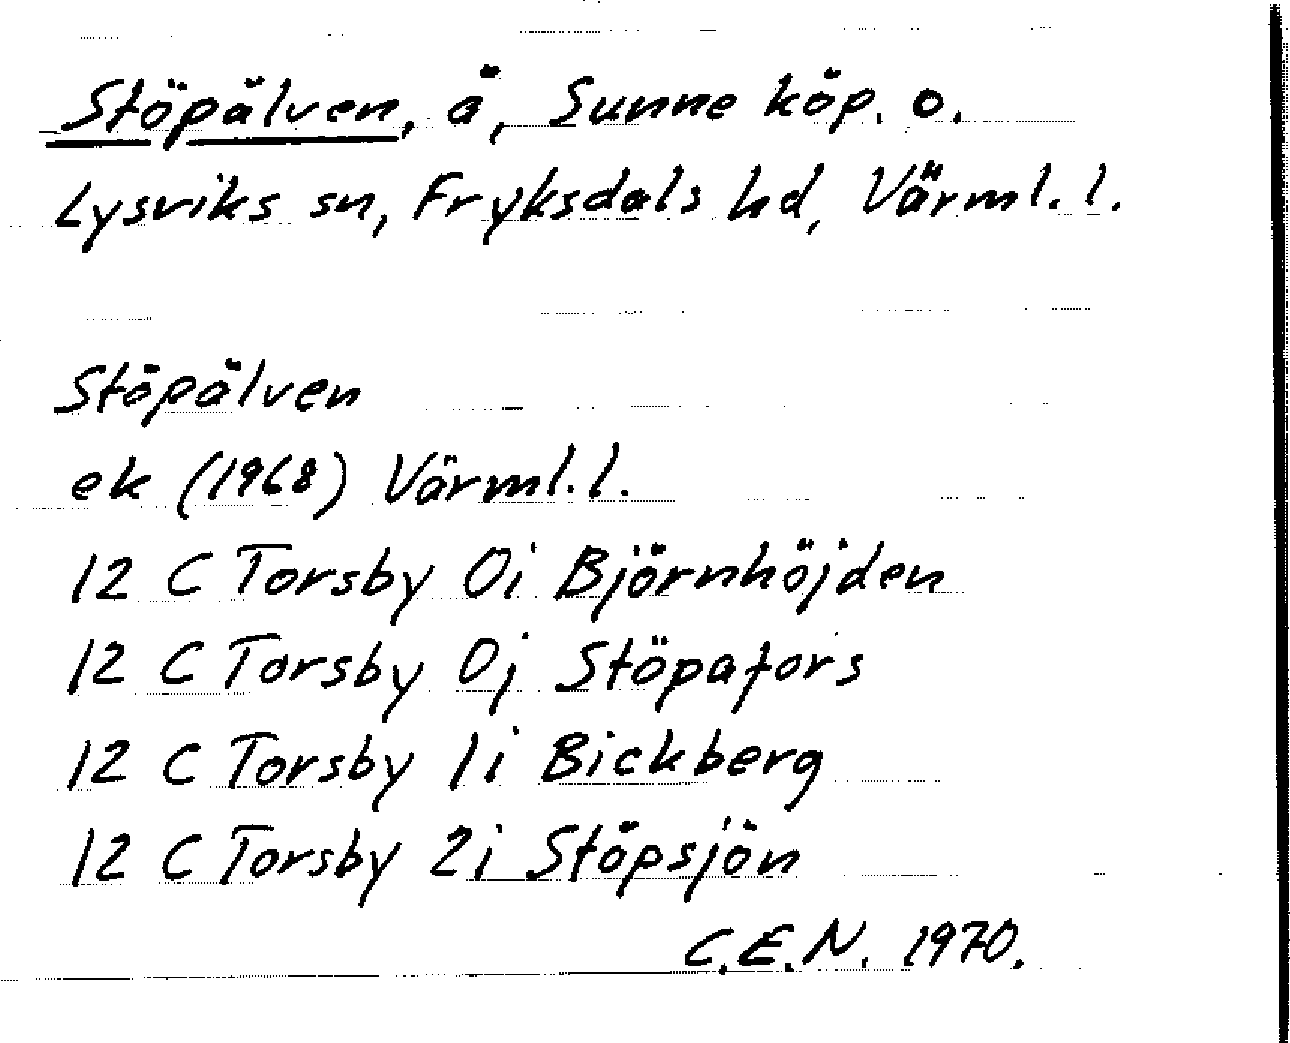 Stöpälven, å, Sunne köp. o.
Lysviks sn, Fryksdals hd, Värml. l.
Stöpälven
ek (1968) Värml. l.
12 C Torsby 0i Björnhöjden
12 C Torsby 0j Stöpafors
12 C Torsby 1i Bickberg
12 C Torsby 2i Stöpsjön
C.E.N. 1970.